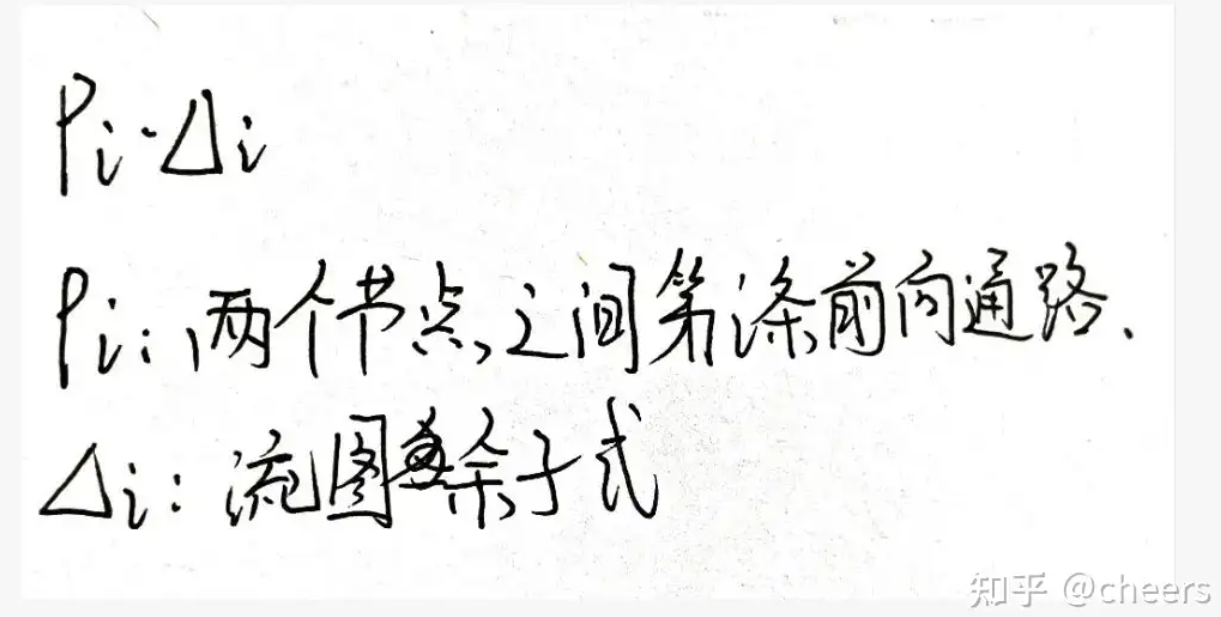 Pi·Δi
Pi:两个节点之间第i条前向通路、
Δi:流图余子式
知乎 @cheers